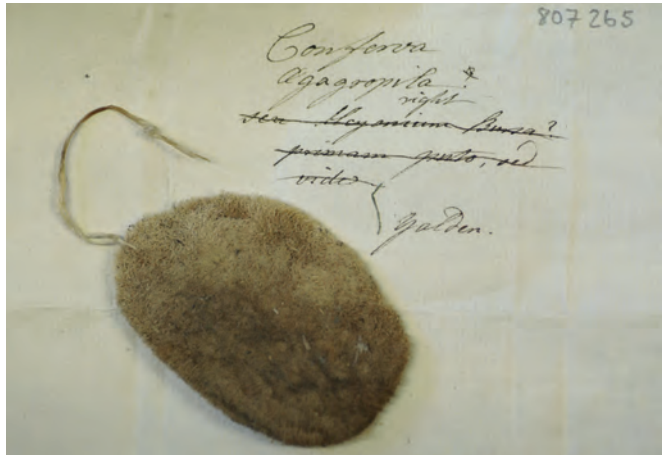 807265
Conferva
Ægagropila.*
right
seu Alcyonium Bursa?
primam puto, sed
vide
Yalden.